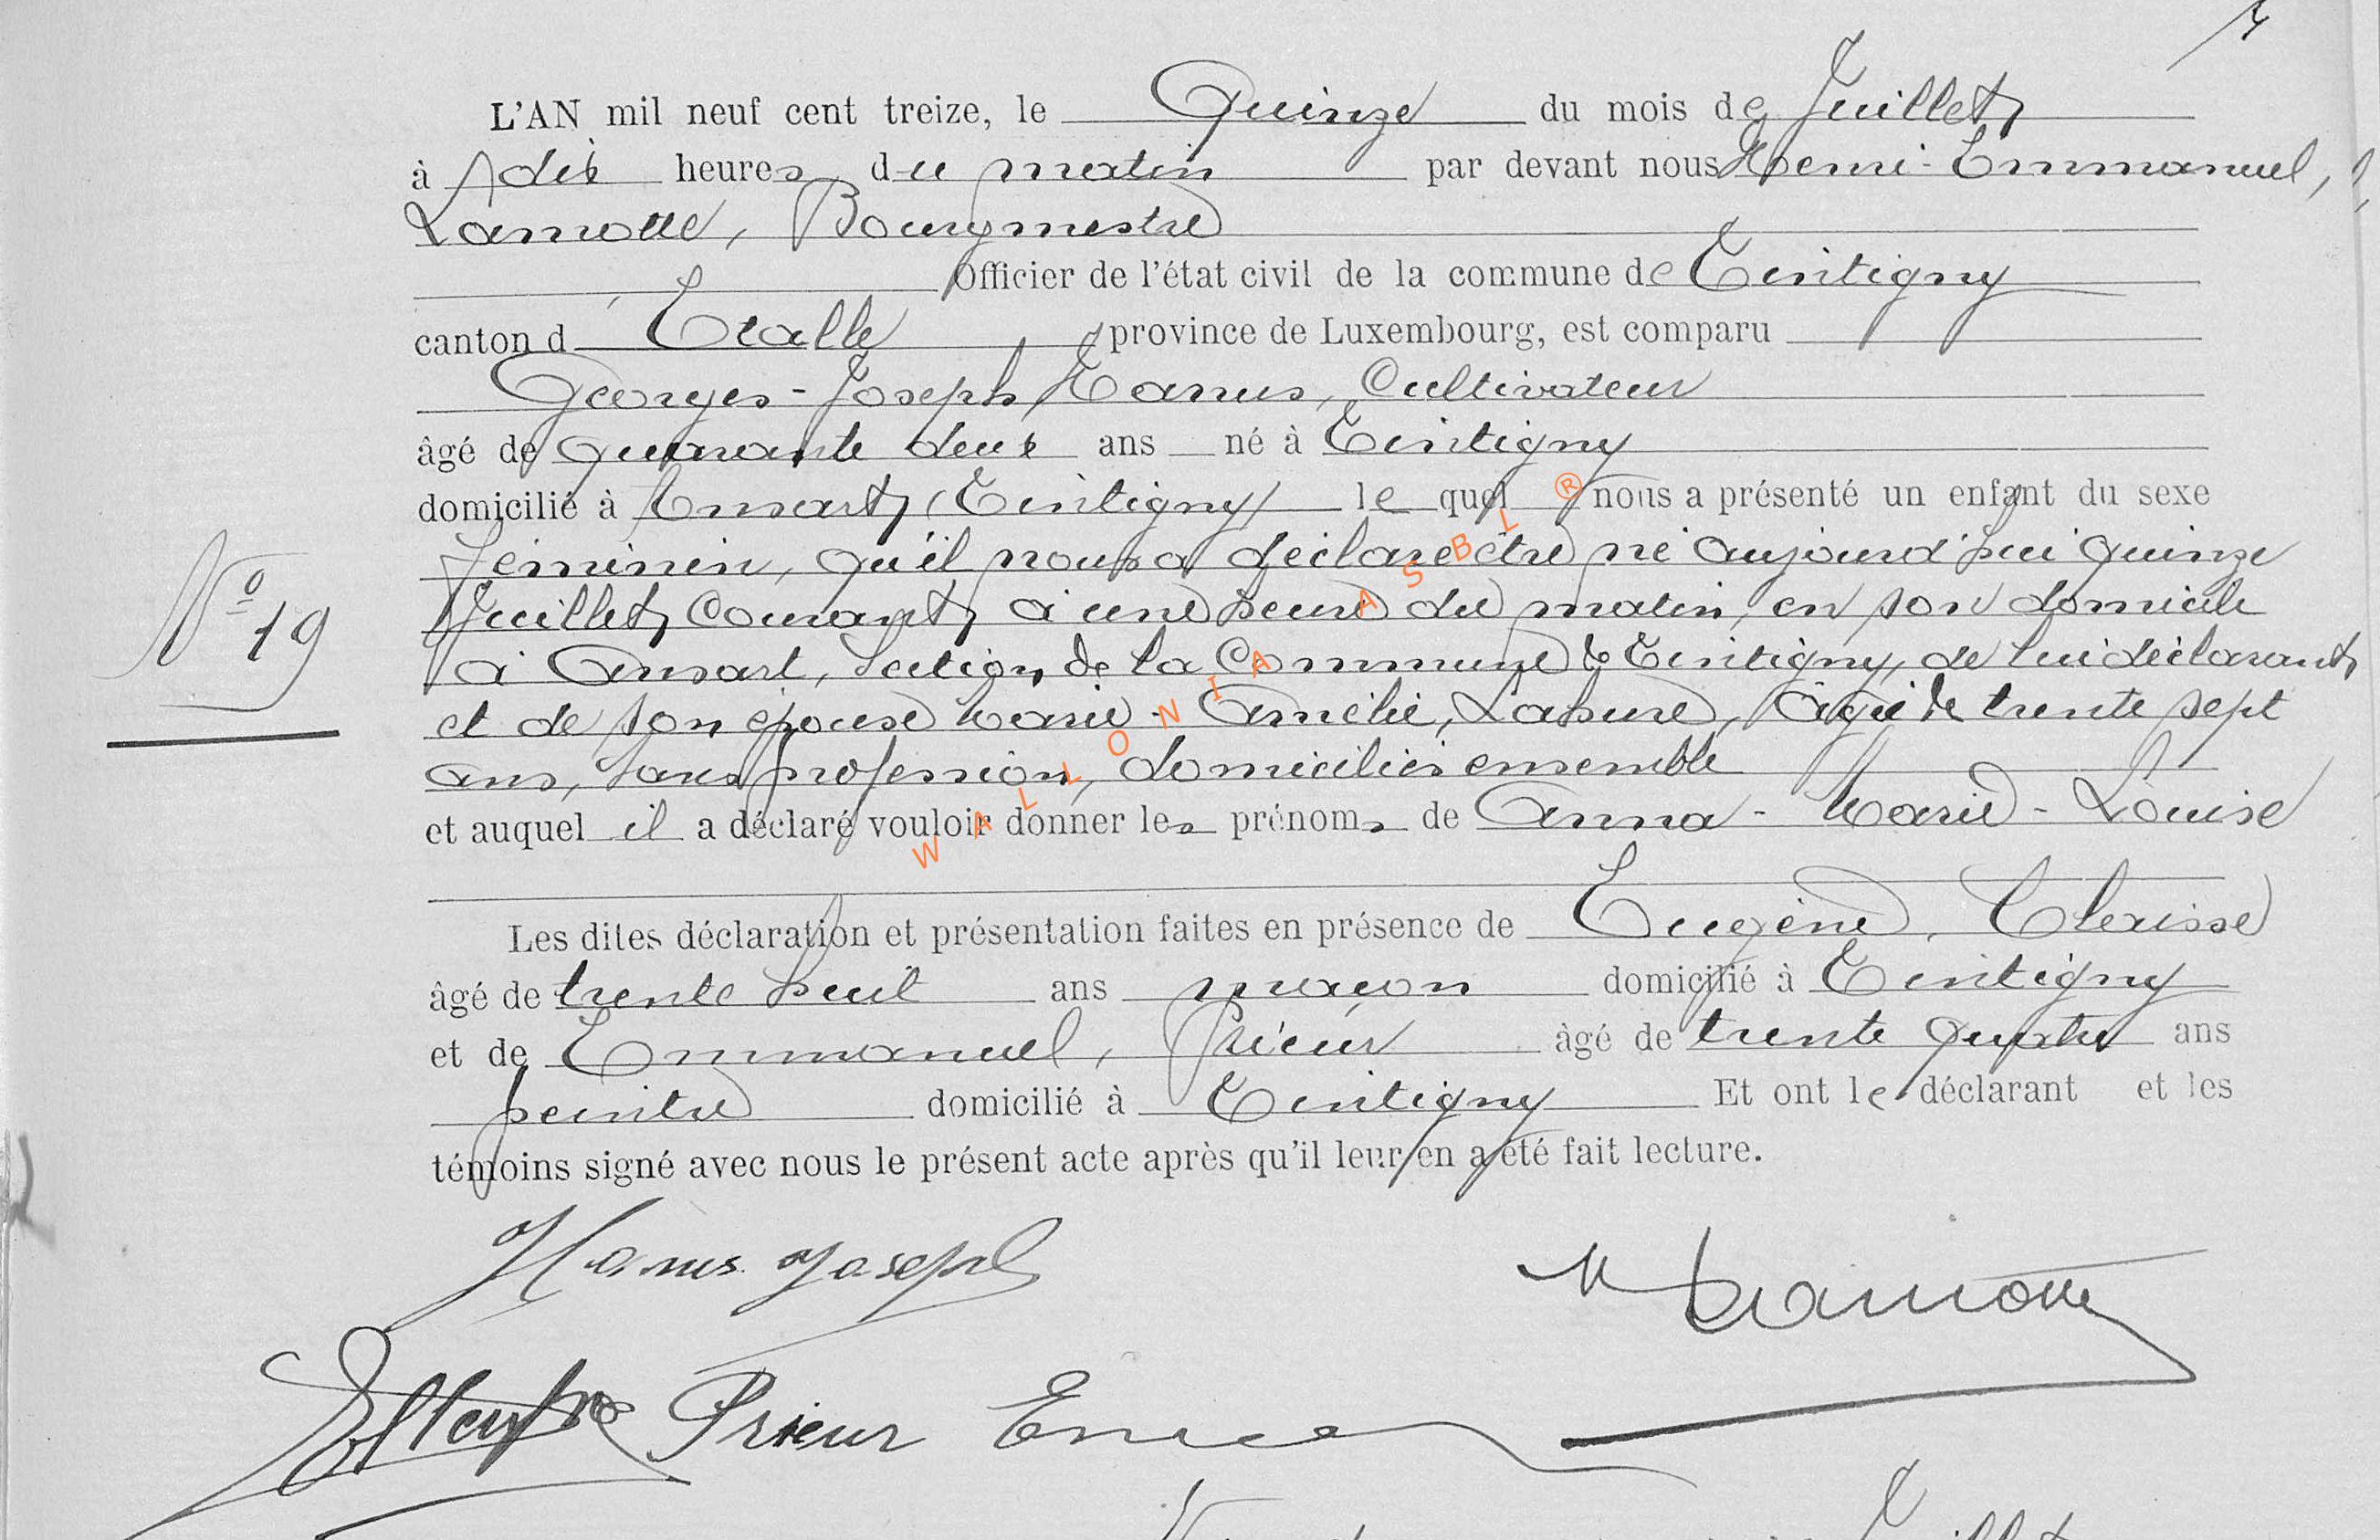 L'AN mil neuf cent treize, le Quinze du mois de Juillet,
à dix heures du matin par devant nous Henri-Emmanuel,
Lamotte, Bourgmestre
Officier de l'état civil de la commune de Tintigny
canton d'Etalle province de Luxembourg, est comparu
Georges-Joseph, Hanus, Cultivateur
âgé de quarante deux ans né à Tintigny
domicilié à Ansart, (Tintigny) le quel nous a présenté un enfant du sexe
féminin, qu'il nous a déclaré être né aujourd'hui quinze
Juillet, courant, à une heure du matin, en son domicile
à Ansart, Section de la Commune de Tintigny, de lui déclarant,
N° 19
et de son épouse Marie-Amélie, Lahure, âgée de trente sept
ans, sans profession, domiciliés ensemble
et auquel il a déclaré vouloir donner les prénoms de Anna-Marie-Louise
WALLONIA ASBL ®
Les dites déclaration et présentation faites en présence de Eugène, Clerisse
âgé de trente huit ans maçon domicilié à Tintigny
et de Emmanuel, Prieur âgé de trente quatre ans
peintre domicilié à Tintigny Et ont le déclarant et les
témoins signé avec nous le présent acte après qu'il leur en a été fait lecture.
Hanus Joseph
Lamotte
Prieur Em